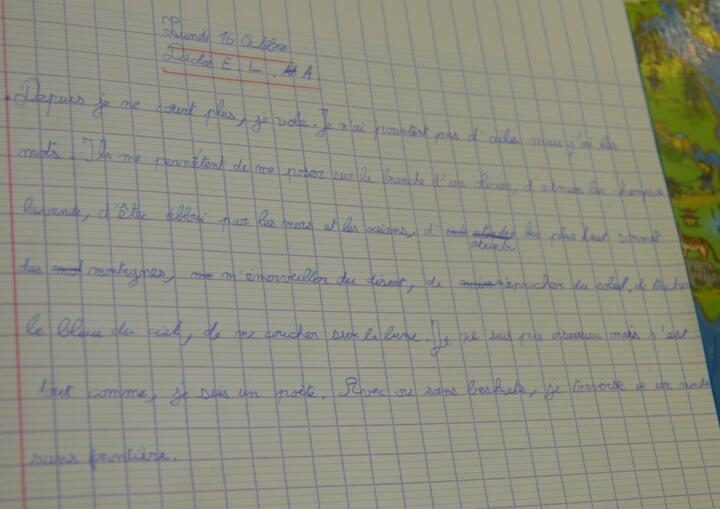 Lundi 16 Octobre
Didos E L . A
Depuis je ne court plus, je vole. Je n'ai pourtant pas d'aile mais j'ai les
mots. Ils me permêtent de me poser sur la branche d'un d'admirer les champs
lavande, d'être ébloui par les mers et les océans, d' atteindre les plus haut sommet
des montagnes, m'émerveiller du désert, de rapprocher du soleil, de toucher
le bleue du ciel, de me coucher sur la lune. Je ne suis pas oiseaux mais s'est
tout comme, je suis un poète. Avec ou sans baskets, je traverse un monde
sans frontière.